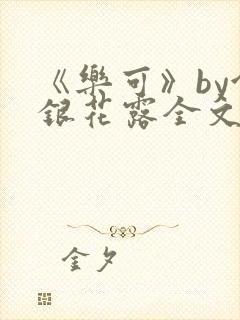 《樂可》by
銀花露全文
金夕